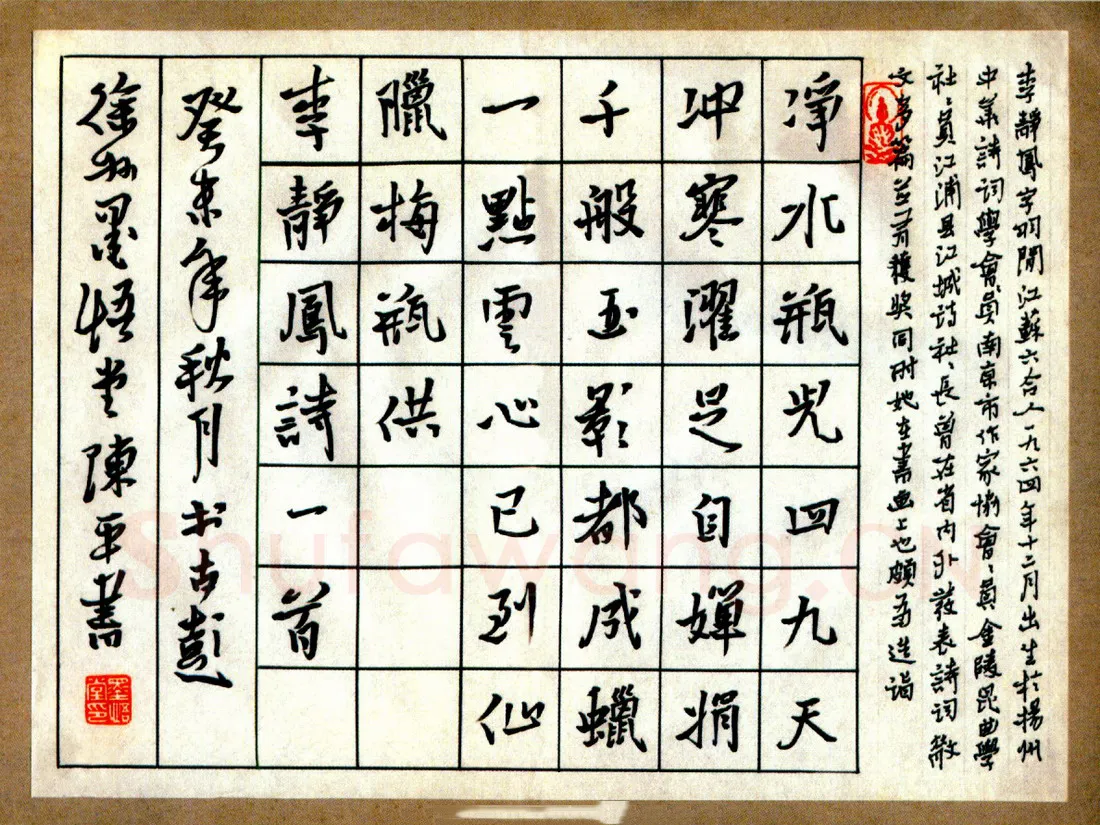 李靜鳳字羽閒江蘇六合人一九六四年十二月出生於揚州
中华詩词學會會員南京市作家協會會員金陵昆曲學
社社員江浦县江城詩社社長曾在省内外發表詩词散
文多篇並有獲奖同时她在書画上也頗有造诣
淨水瓶光四九天
冲寒濯足自嬋娟
千般玉影都成蠟
一點雲心已到仙
臘梅瓶供
李靜鳳詩一首
癸未年秋月书古彭
徐州墨悟堂陳平書
墨悟堂印
Shufawang.CN